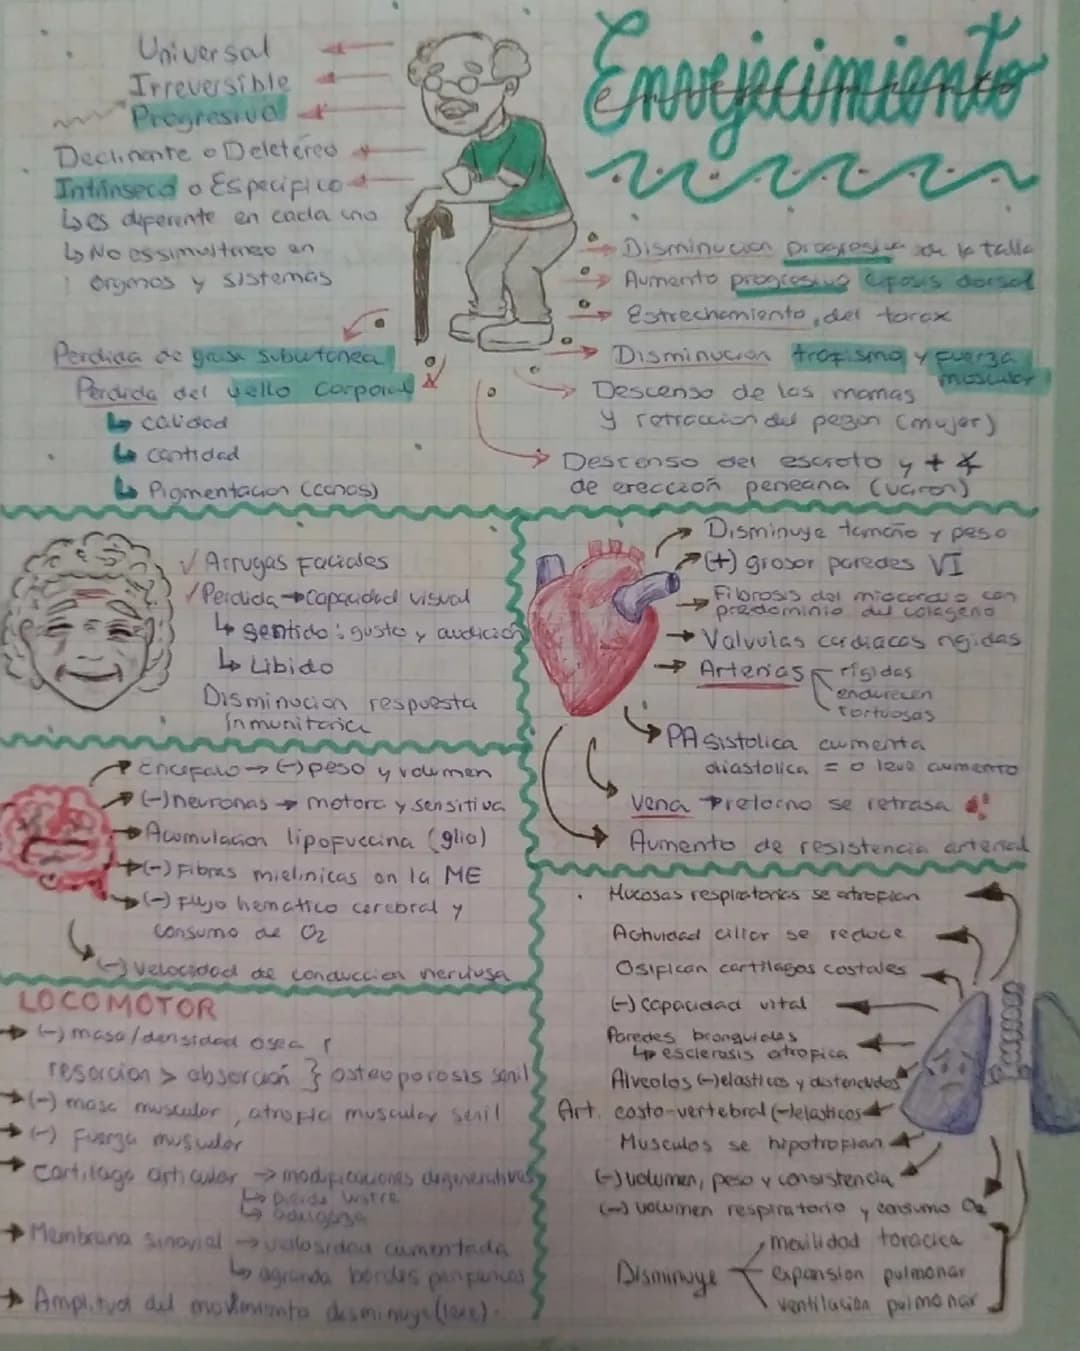 Envejecimiento
Universal
Irreversible
Progresivo
Declinante o Deletéreo
Intrínseco o Específico
↳ es diferente en cada uno
↳ No es simultaneo en
organos y sistemas
Perdida de grasa subcutanea
Perdida del vello corporal
↳ calidad
↳ cantidad
↳ Pigmentacion (canas)
Disminucion progresiva de la talla
Aumento progresivo cifosis dorsal
Estrechamiento, del torax
Disminución trofismo y fuerza
muscular
Descenso de las mamas
y retraccion del pezon (mujer)
Descenso del escroto y + ∡
de erección peneana (varon)
✓ Arrugas Faciales
✓ Perdida → Capacidad visual
↳ sentido: gusto y audición
↳ Libido
Disminucion respuesta
inmunitaria
→ Disminuye tamaño y peso
→ (+) grosor paredes VI
→ Fibrosis del miocardio con
predominio del colageno
→ Valvulas cardiacas rigidas
→ Arterias rigidas
endurecen
tortuosas
→ PA sistolica aumenta
diastolica = o leve aumento
Vena → retorno se retrasa
→ Aumento de resistencia arterial
→ Encefalo → (-) peso y volumen
→ (-) neuronas → motora y sensitiva
→ Acumulacion lipofuccina (glio)
→ (-) Fibras mielinicas en la ME
→ (-) Flujo hematico cerebral y
consumo de O2
(-) velocidad de conduccion nerviosa
LOCOMOTOR
→ (-) masa/densidad osea
resorcion > absorción } osteoporosis senil
→ (-) masa muscular, atrofia muscular senil
→ (-) Fuerza muscular
→ Cartilago articular → modificaciones degenerativas
↳ pierde lustre
↳ adelgaza
→ Membrana sinovial → vellosidad aumentada
↳ agranda bordes perifericos
→ Amplitud del movimiento disminuye (leve).
Mucosas respiratorias se atrofian
Actividad ciliar se reduce
Osifican cartilagos costales
(-) Capacidad vital
Paredes bronquiales
↳ esclerosis atrofica
Alveolos (-) elasticos y distendidos
Art. costo-vertebral (-) elasticos
Musculos se hipotrofian
(-) volumen, peso y consistencia
(-) volumen respiratorio y consumo O2
Disminuye movilidad toracica
expansion pulmonar
ventilación pulmonar